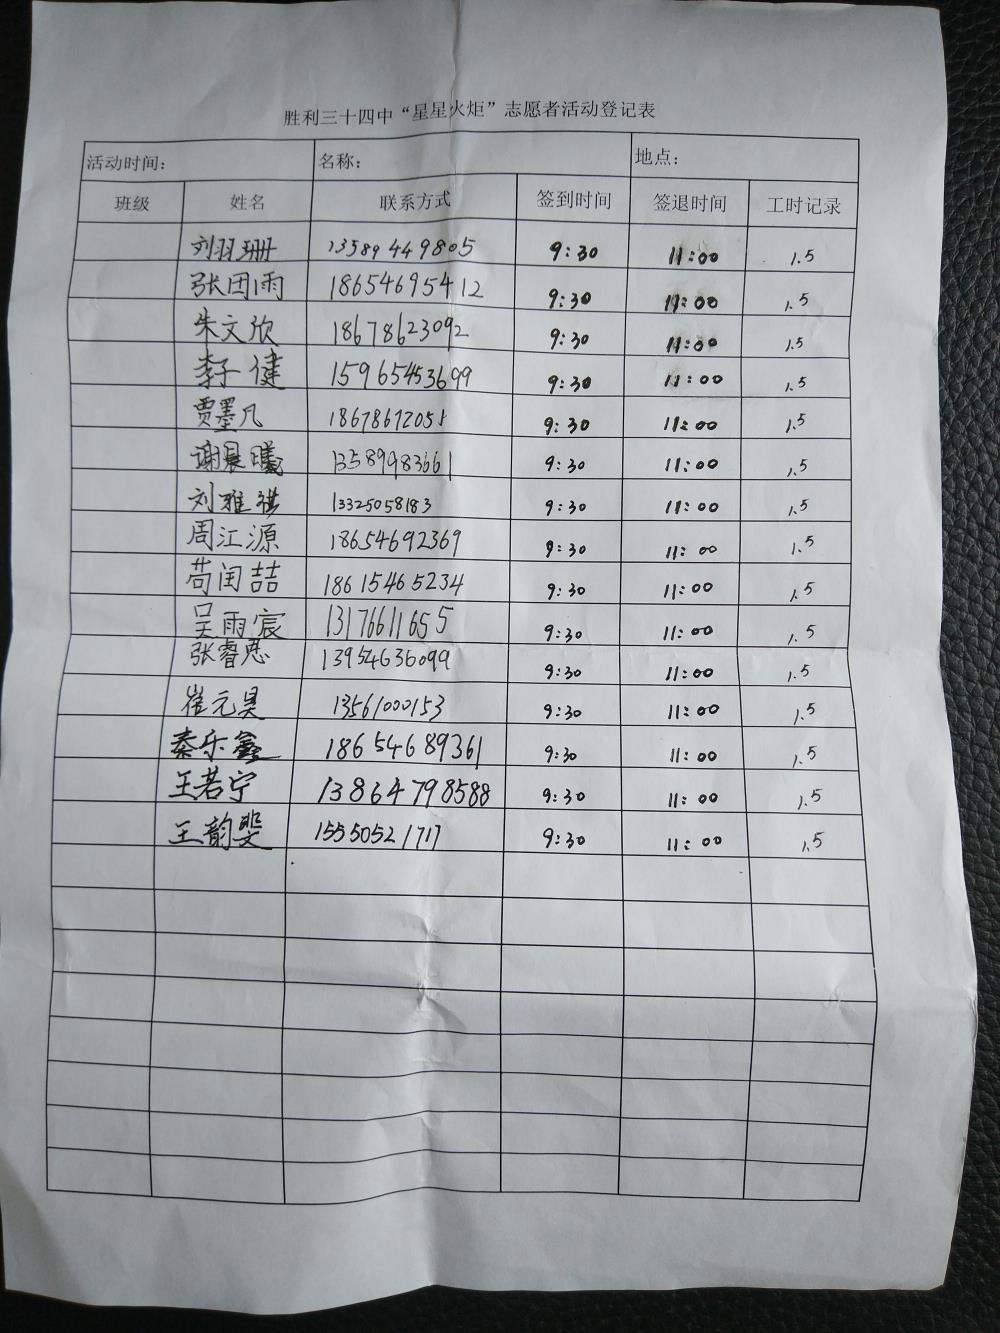 胜利三十四中“星星火炬”志愿者活动登记表
活动时间： 名称： 地点：
班级 姓名 联系方式 签到时间 签退时间 工时记录
刘羽珊 13589449805 9:30 11:00 1.5
张因雨 18654695412 9:30 11:00 1.5
朱文欣 18678623092 9:30 11:00 1.5
李子健 15965453699 9:30 11:00 1.5
贾墨凡 18678672051 9:30 11:00 1.5
谢晨曦 13589983661 9:30 11:00 1.5
刘雅祺 13325058183 9:30 11:00 1.5
周江源 18654692369 9:30 11:00 1.5
苟闰喆 18615465234 9:30 11:00 1.5
吴雨宸 13176611655 9:30 11:00 1.5
张睿思 13954636099 9:30 11:00 1.5
崔元昊 13561000153 9:30 11:00 1.5
秦乐鑫 18654689361 9:30 11:00 1.5
王若宁 13864798588 9:30 11:00 1.5
王韵斐 15550521717 9:30 11:00 1.5